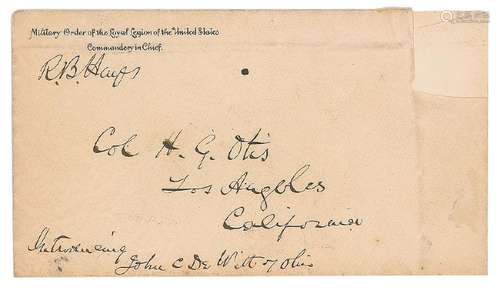 Military Order of the Loyal Legion of the United States
Commandery in Chief.
R.B. Hayes
Col H. G. Otis
Los Angeles
California
Introducing
John C De Witt of Ohio